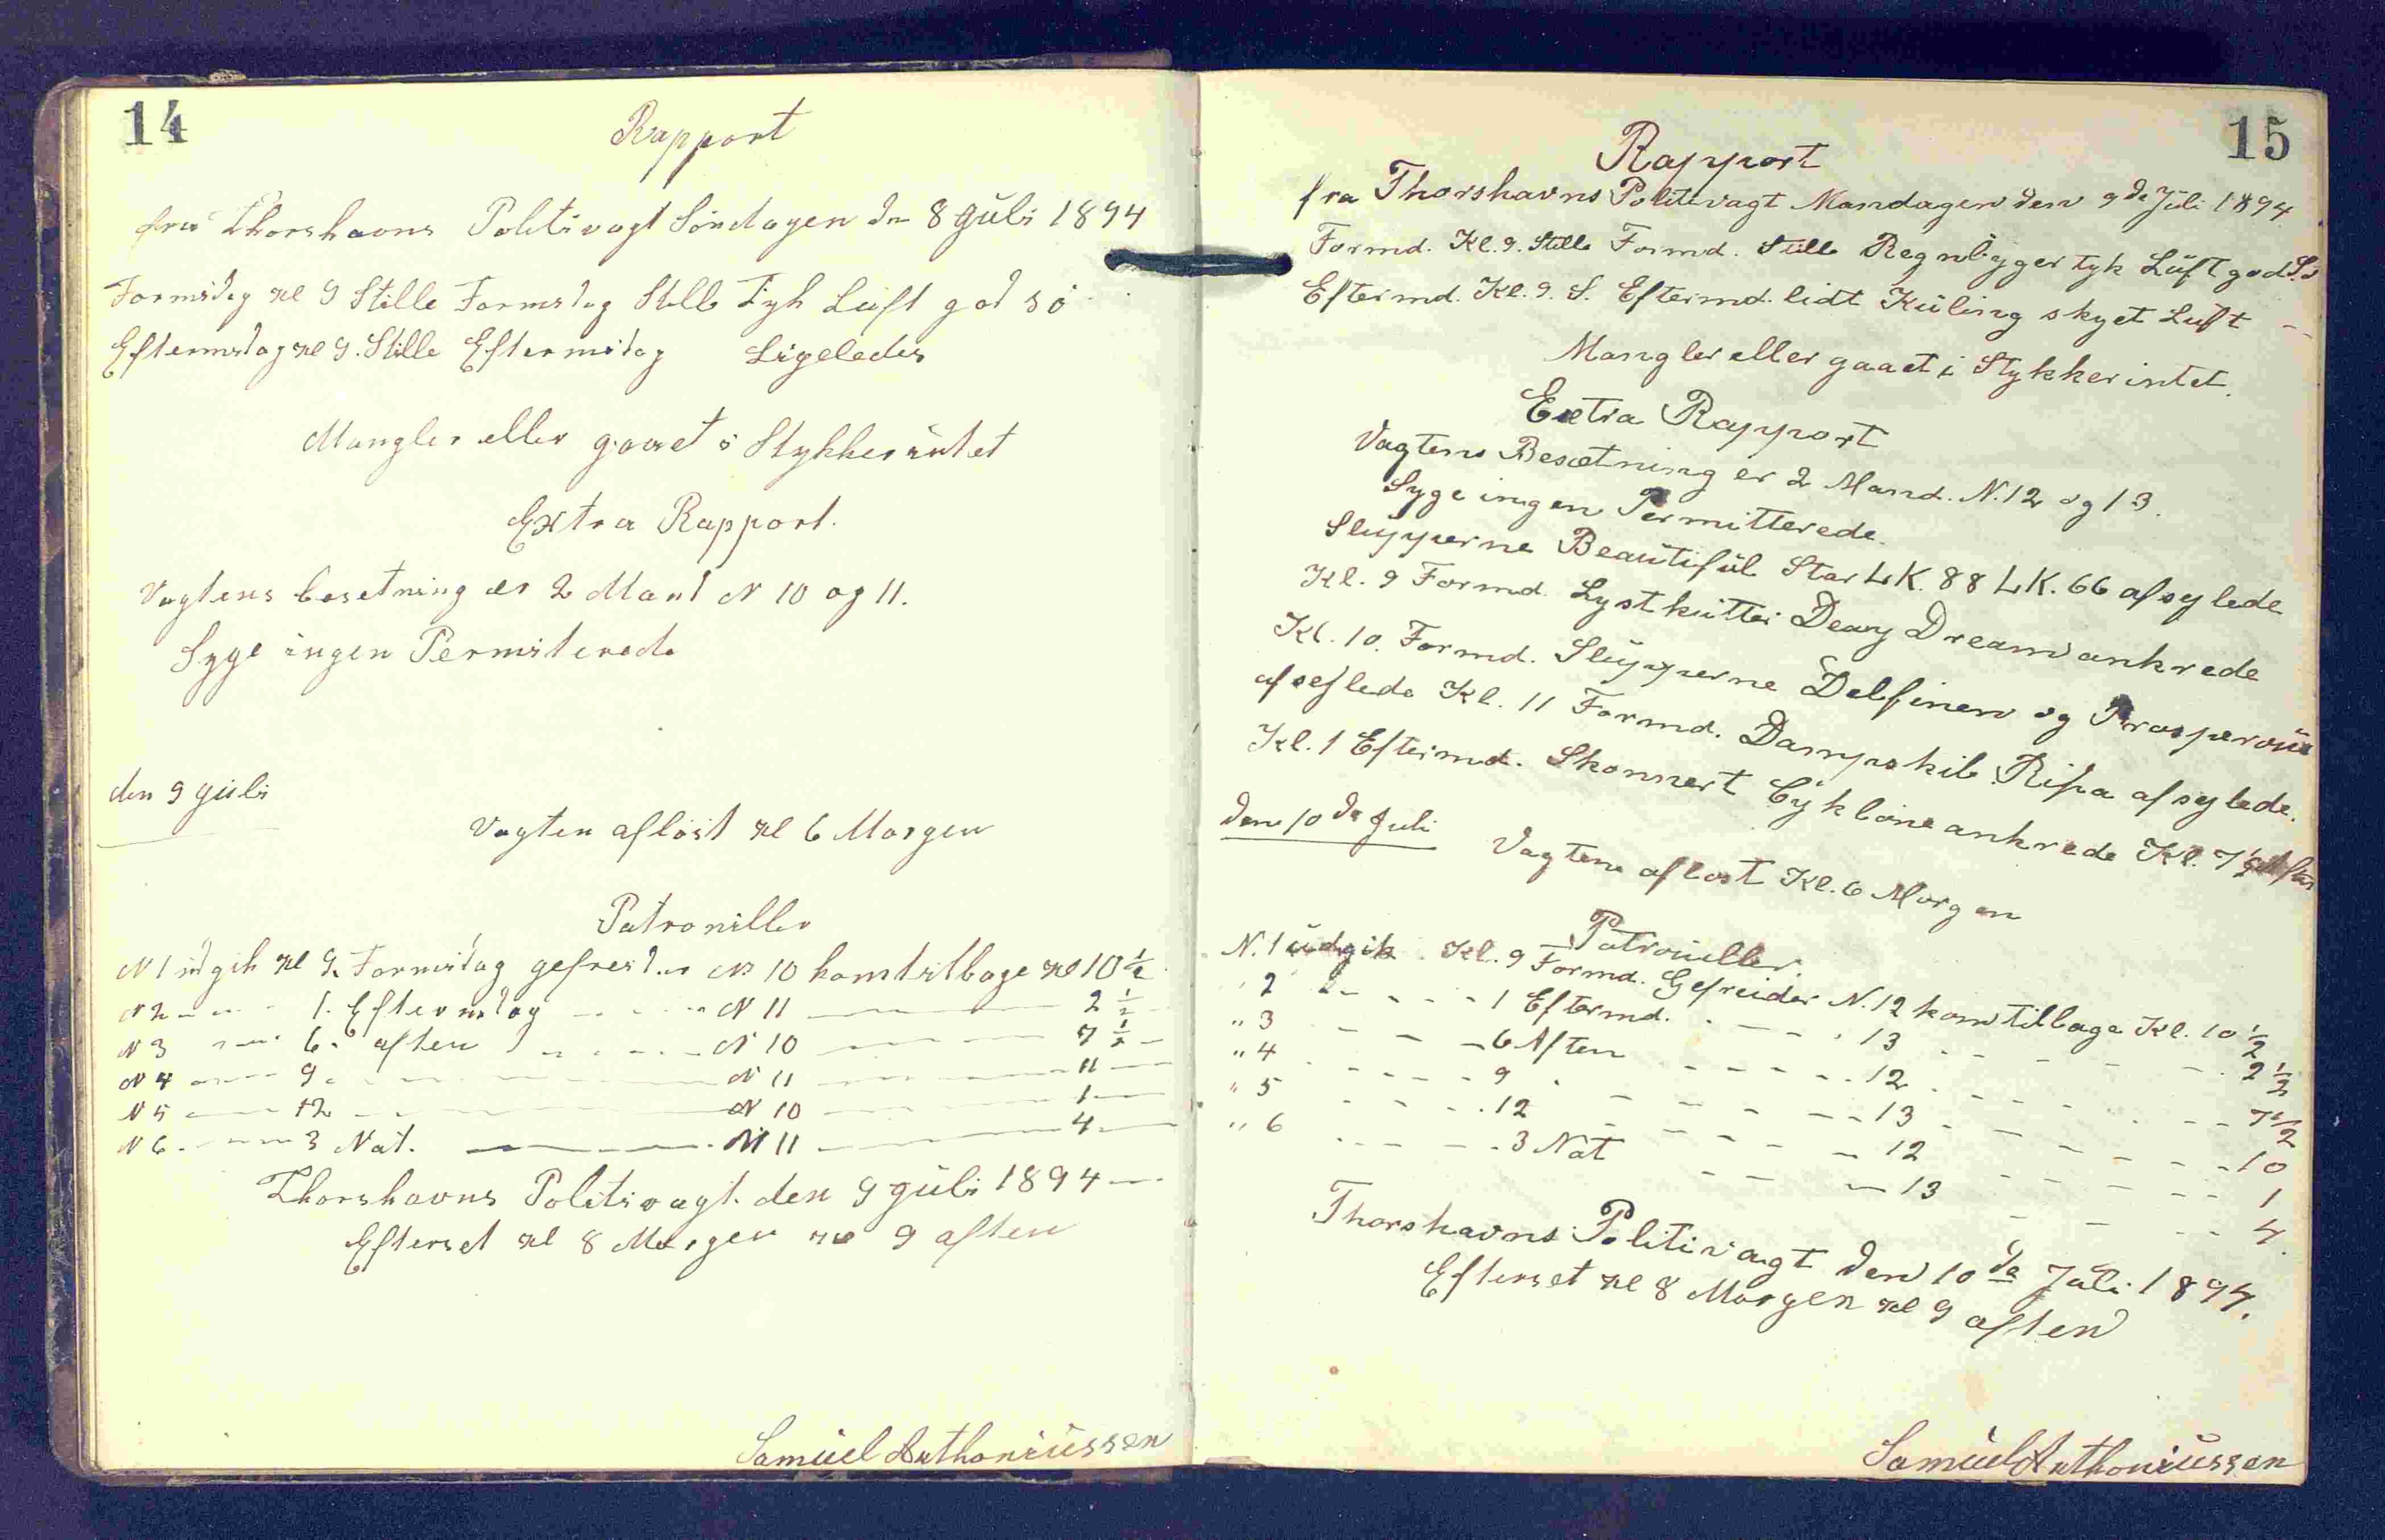 14
Rapport
fra Thorshavns Politivagt Söndagen dn 8 Juli 1894
Formidag kl 9 Stille Formidag Stille Tyk Luft god Sö
Eftermidag kl 9. Stille Eftermidag Ligeledes
Mangler eller gaaet i Stykker intet
Extra Rapport.
Vagtens besetning er 2 Mand N 10 og 11.
Syge ingen Permiterede
den 9 Juli
Vagten aflöst kl 6 Morgen
Patroniller
N 1 udgik kl 9. Formidag gefreider N 10 kom tilbage kl 10 1/2
N 2 - - - 1. Eftermidag - - - N 11 - - - 2 1/2
N 3 - - - 6. aften - - - N 10 - - - 7 1/2
N 4 - - - 9 - - - N 11 - - - 11
N 5 - - - 12 - - - N 10 - - - 1
N 6 - - - 3 Nat. - - - N 11 - - - 4
Thorshavns Politivagt. den 9 Juli 1894
Efterset kl 8 Morgen kl 9 aften
Samüel Anthoniüssen
15
Rapport
fra Thorshavns Politivagt Mandagen den 9de Jüli 1894
Formd. Kl. 9. Stille Formd. Stille Regnbyger tyk Lüft god Sö
Eftermd. Kl. 9. S. Eftermd. lidt Küling skyet Lüft - -
Mangler eller gaaet i Stykker intet.
Extra Rapport
Vagtens Besætning er 2 Mand. N. 12 og 13.
Syge ingen Permitterede.
Slupperne Beaütifül Star LK. 88 LK. 66 afsejlede
Kl. 9 Formd. Lystkutter Deay Dream ankrede
Kl. 10. Formd. Slupperne Delfinen og Prosperoüs
afsejlede Kl. 11 Formd. Dampskib Ripa afsejlede.
Kl. 1 Eftermd. Skonnert Cyklone ankrede Kl. 7
den 10de Juli
Vagten aflöst Kl. 6 Morgen
Patroüller.
N. 1 üdgik Kl. 9 Formd. Gefreider N. 12 kom tilbage Kl. 10 1/2
" 2 - - - 1 Eftermd. - - - 13 - - - 2 1/2
" 3 - - - 6 Aften - - - 12 - - - 7 1/2
" 4 - - - 9 - - - 13 - - - 10
" 5 - - - 12 - - - 12 - - - 1
" 6 - - - 3 Nat - - - 13 - - - 4.
Thorshavns Politivagt den 10de Jüli 1894.
Efterset kl 8 Morgen kl 9 aften
Samüel Anthoniüssen